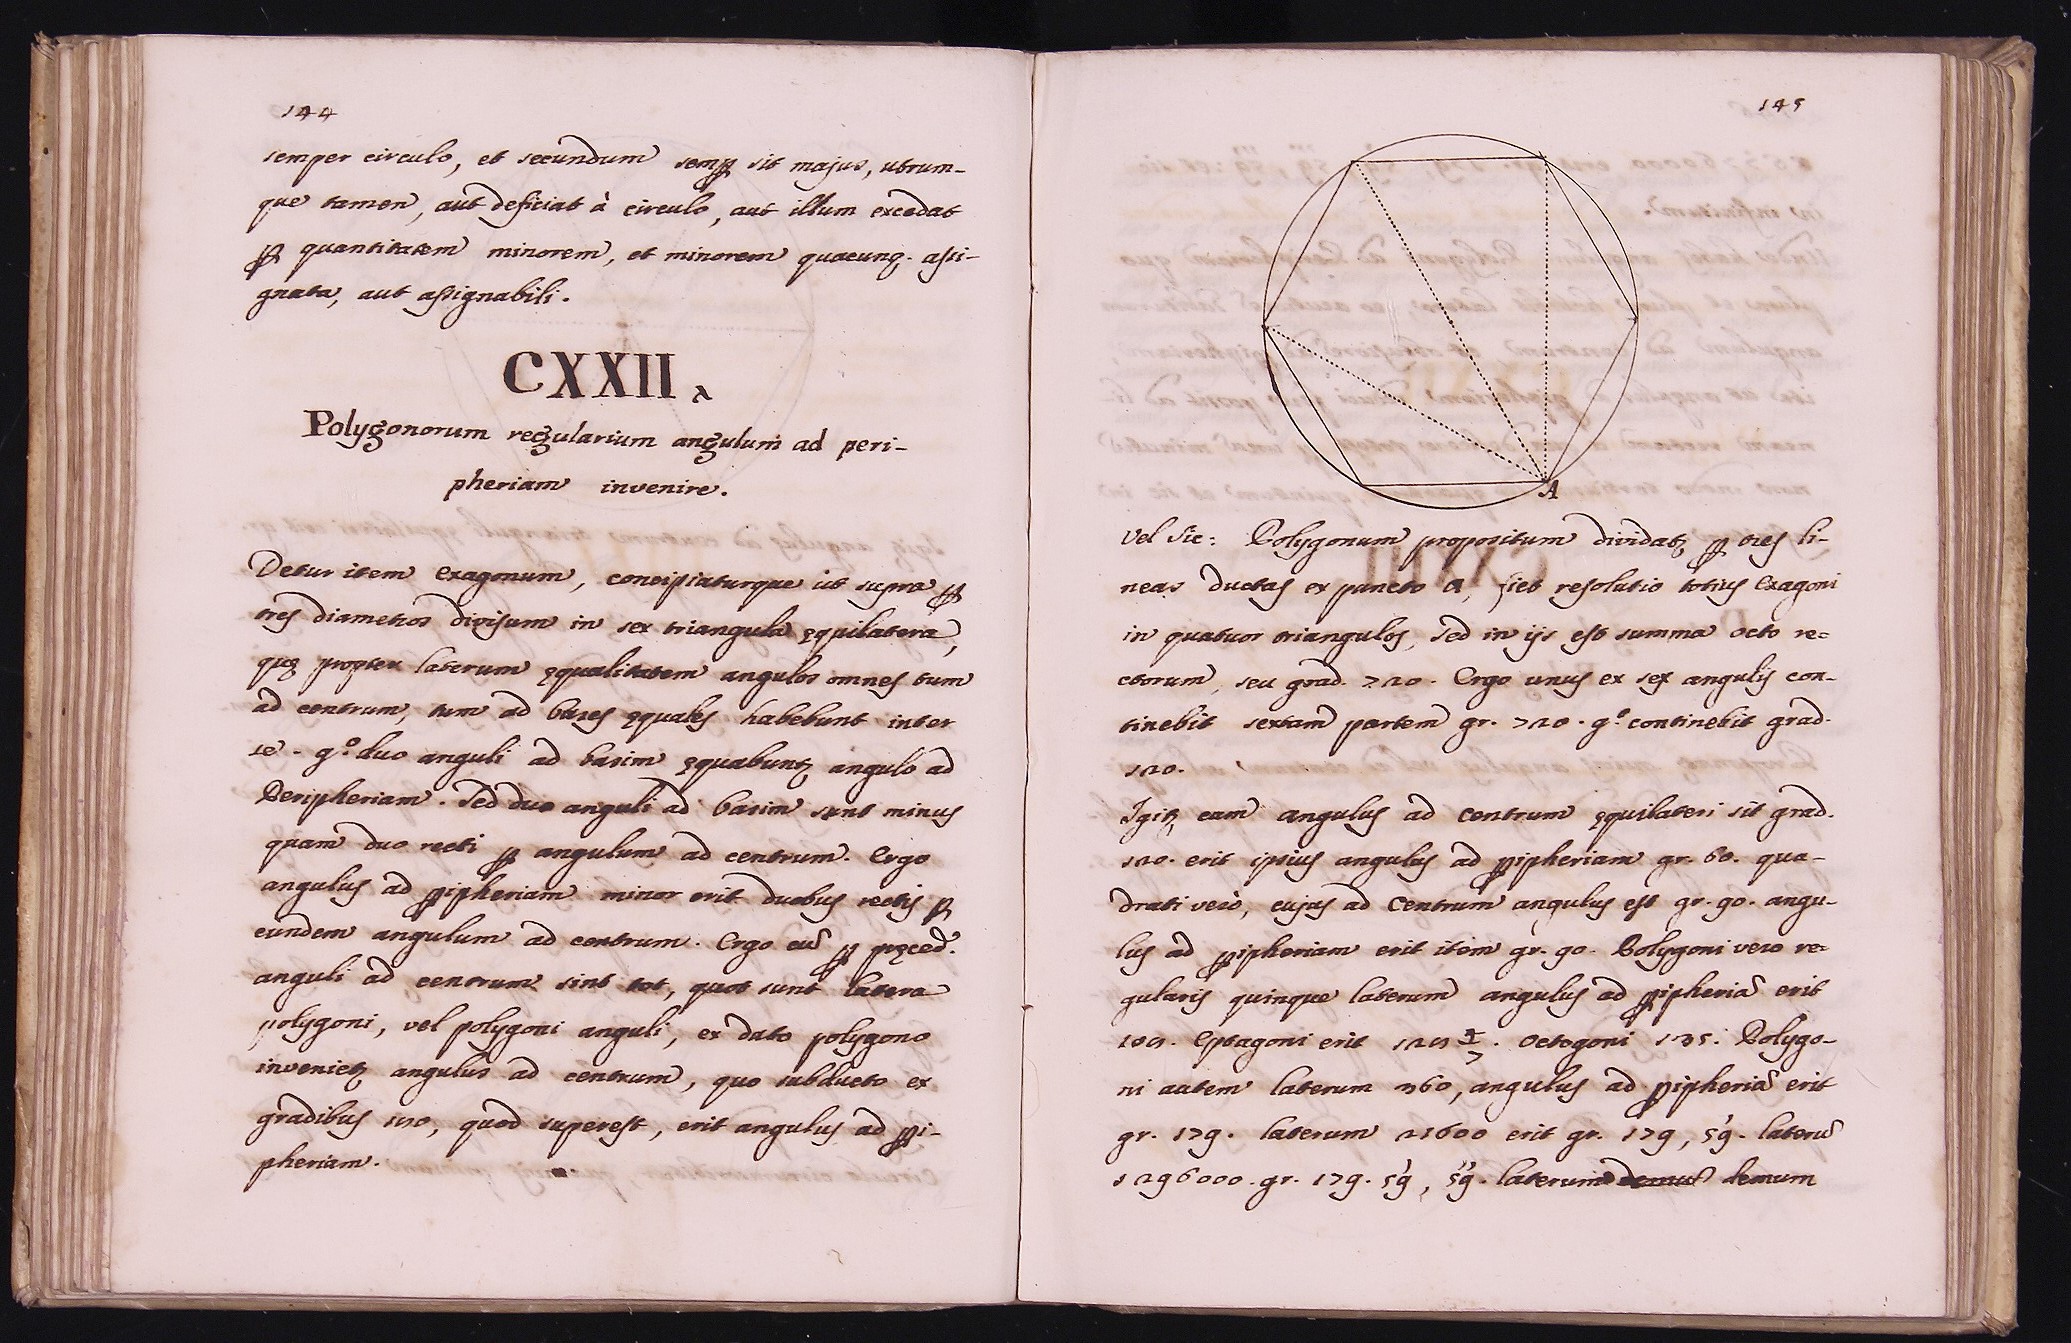 144
semper circulo, et secundum semp sit majus, utrum-
que tamen, aut deficiat à circulo, aut illum excedat
p quantitatem minorem, et minorem quacunq. assi-
gnata, aut assignabili.
CXXII
Polygonorum regularium angulum ad peri-
pheriam invenire.
Detur item exagonum, concipiaturque ut supra p
tres diametros divisum in sex triangula ęquilatera,
quę propter laterum ęqualitatem angulos omnes tum
ad centrum, tum ad bases ęquales habebunt inter
se. g.º duo anguli ad basim ęquabunt angulo ad
Peripheriam. Sed duo anguli ad basim sunt minus
quam duo recti p angulum ad centrum. Ergo
angulus ad pipheriam minor erit duobus rectis p
eundem angulum ad centrum. Ergo cū p pręced.
anguli ad centrum sint tot, quot sunt latera
polygoni, vel polygoni anguli, ex dato polygono
invenietꝫ angulus ad centrum, quo subducto ex
gradibus 180, quod superest, erit angulus ad pi-
pheriam.
145
A
Vel sic: Polygonum propositum dividatꝫ p tres li-
neas ductas ex puncto A, fiet resolutio totius exagoni
in quatuor triangulos, sed in ijs est summa octo re-
ctorum, seu grad. 720. Ergo unus ex sex angulis con-
tinebit sextam partem gr. 720. g.º continebit grad.
120.
Igitꝫ cum angulus ad centrum ęquilateri sit grad.
120. erit ipsius angulus ad pipheriam gr. 60. qua-
drati verò, cujus ad centrum angulus est gr. 90. angu-
lus ad pipheriam erit item gr. 90. Polygoni vero re-
gularis quinque laterum angulus ad pipheriā erit
108. Eptagoni erit 128 4/7. Octogoni 135. Polygo-
ni autem laterum 360, angulus ad pipheriā erit
gr. 179. laterum 21600 erit gr. 179, 59'. laterū
1296000. gr. 179. 59', 59''. laterum demum